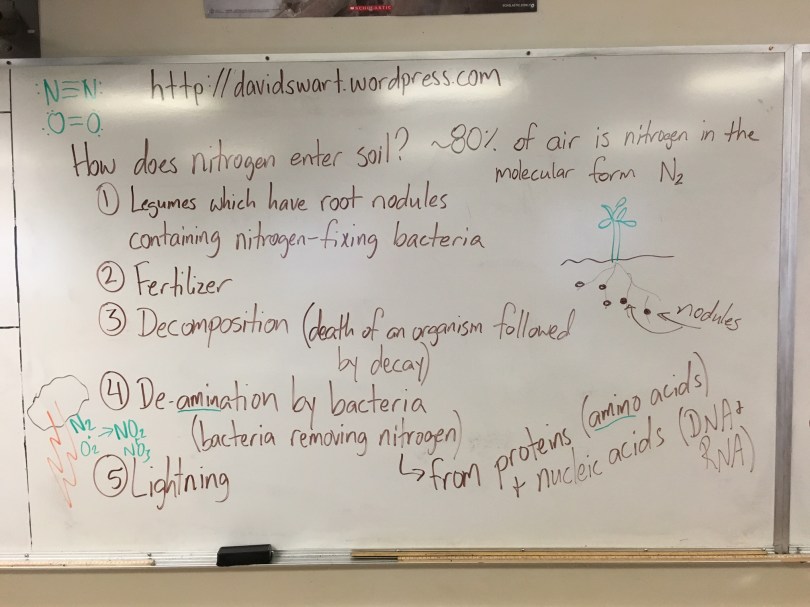 SCHOLASTIC
:N≡N:
http://davidswart.wordpress.com
:O=O:
How does nitrogen enter soil? ~80% of air is nitrogen in the
molecular form N₂
① Legumes which have root nodules
containing nitrogen-fixing bacteria
② Fertilizer
③ Decomposition (death of an organism followed
by decay)
nodules
④ De-amination by bacteria
(bacteria removing nitrogen)
↳ from proteins (amino acids)
+ nucleic acids (DNA +
RNA)
N₂ → NO₂
O₂ NO₃
⑤ Lightning